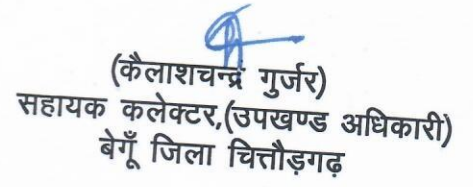 (कैलाशचन्द्र गुर्जर)
सहायक कलेक्टर,(उपखण्ड अधिकारी)
बेगूँ जिला चित्तौड़गढ़